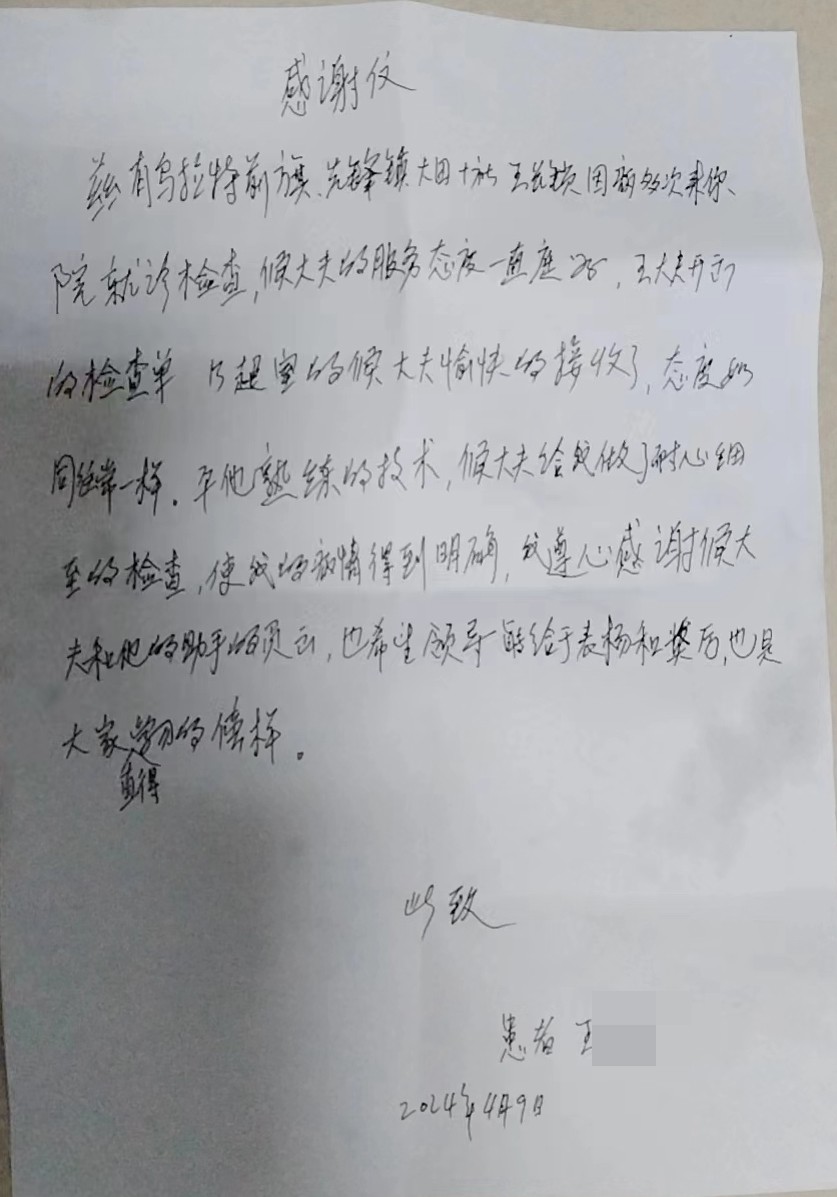 感谢仪
兹有乌拉特前旗、先锋镇大田十社 王 锁因病多次来你、
院就诊检查,候大夫的服务态度一直座好,王大夫开
的检查单 B超室的候大夫愉快的接收了,态度如
同往常一样。平他熟练的技术,候大夫给我做了耐心细
至的检查,使我的病情得到明确,我遵心感谢候大
夫和他的助手的 ,也希望领导 给于表杨和奖历,也是
大家值得学习的傍样。
此致
患者 王
2024年4月9日